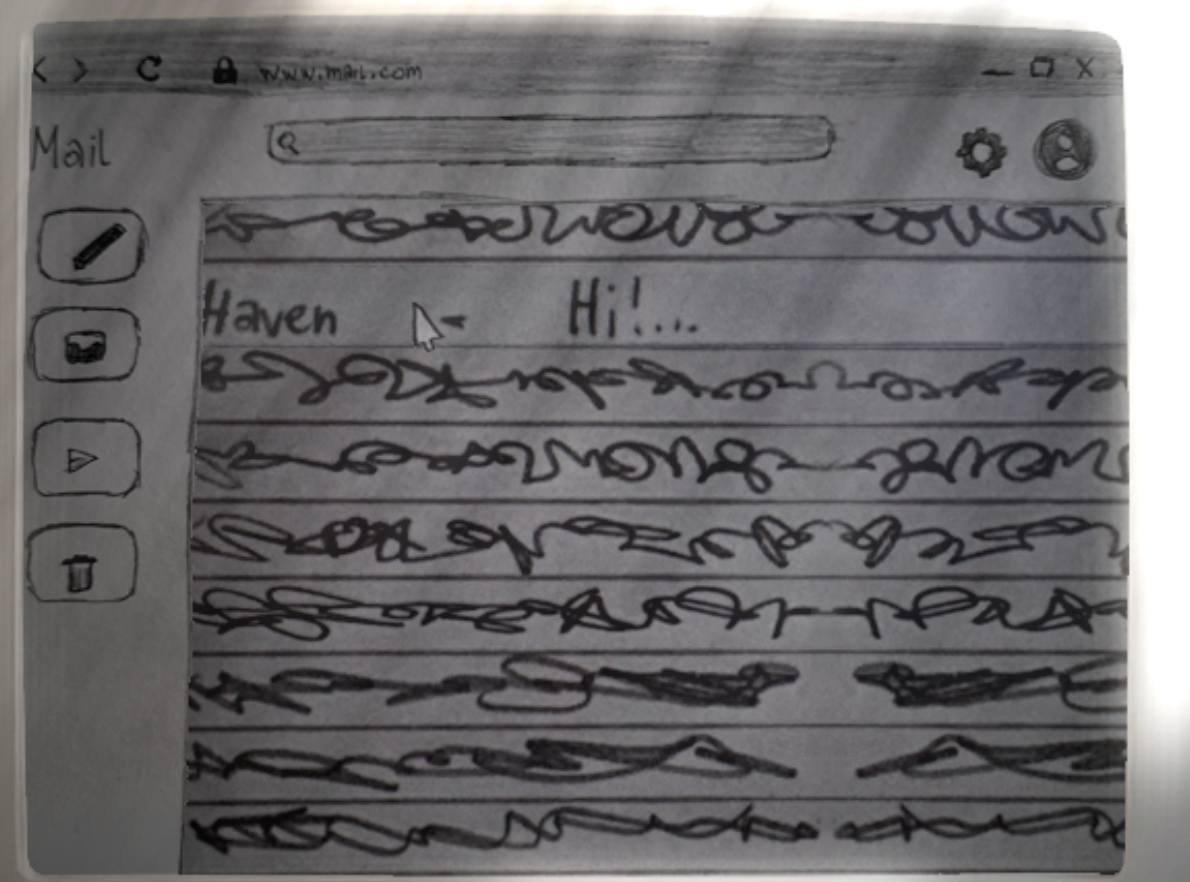 www.mail.com
Mail
Haven - Hi!....